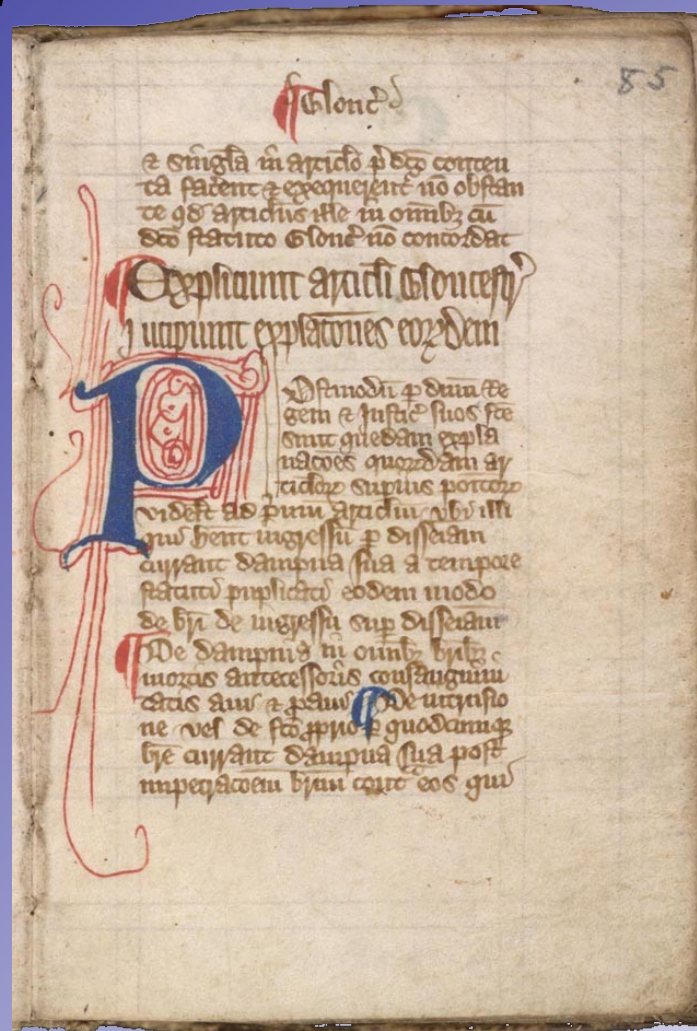 85
¶ Glonc̄
& singl̄a in articlo p̄dc̄o conten
ta facent & exequerent̄ nō obstan
te qd̄ articlus ille in omībꝫ cū
dc̄o statuto Glonc̄ nō concordat
¶ Expliciunt articl̄i Gloucestr̄
Incipiunt expl̄ac̄ones eorꝫdem
Postmodū ꝑ dn̄m Re
gem & Justic̄ suos fc̄e
sunt quedam expla
nac̄ões quorꝫdam ar
ticlorꝫ suꝑius positorꝫ
videlꝫt ad p̄mū Articlm̄ vbi illi
qui hēnt ingressū ꝑ disseīam
currant dampna sua a tempore
statuti puplicati eodem modo
de br̄i de ingressu suꝑ disseīam
¶ De dampnis in omībꝫ brībꝫ
mortis antecessoris consanguini
tatis aui & ꝓaui ¶ De intrusio
ne vel de fc̄o ꝓprio ꝑ quodcumqꝫ
br̄e currant dampna sua post
impetrac̄oem br̄ium cont̄ eos qui